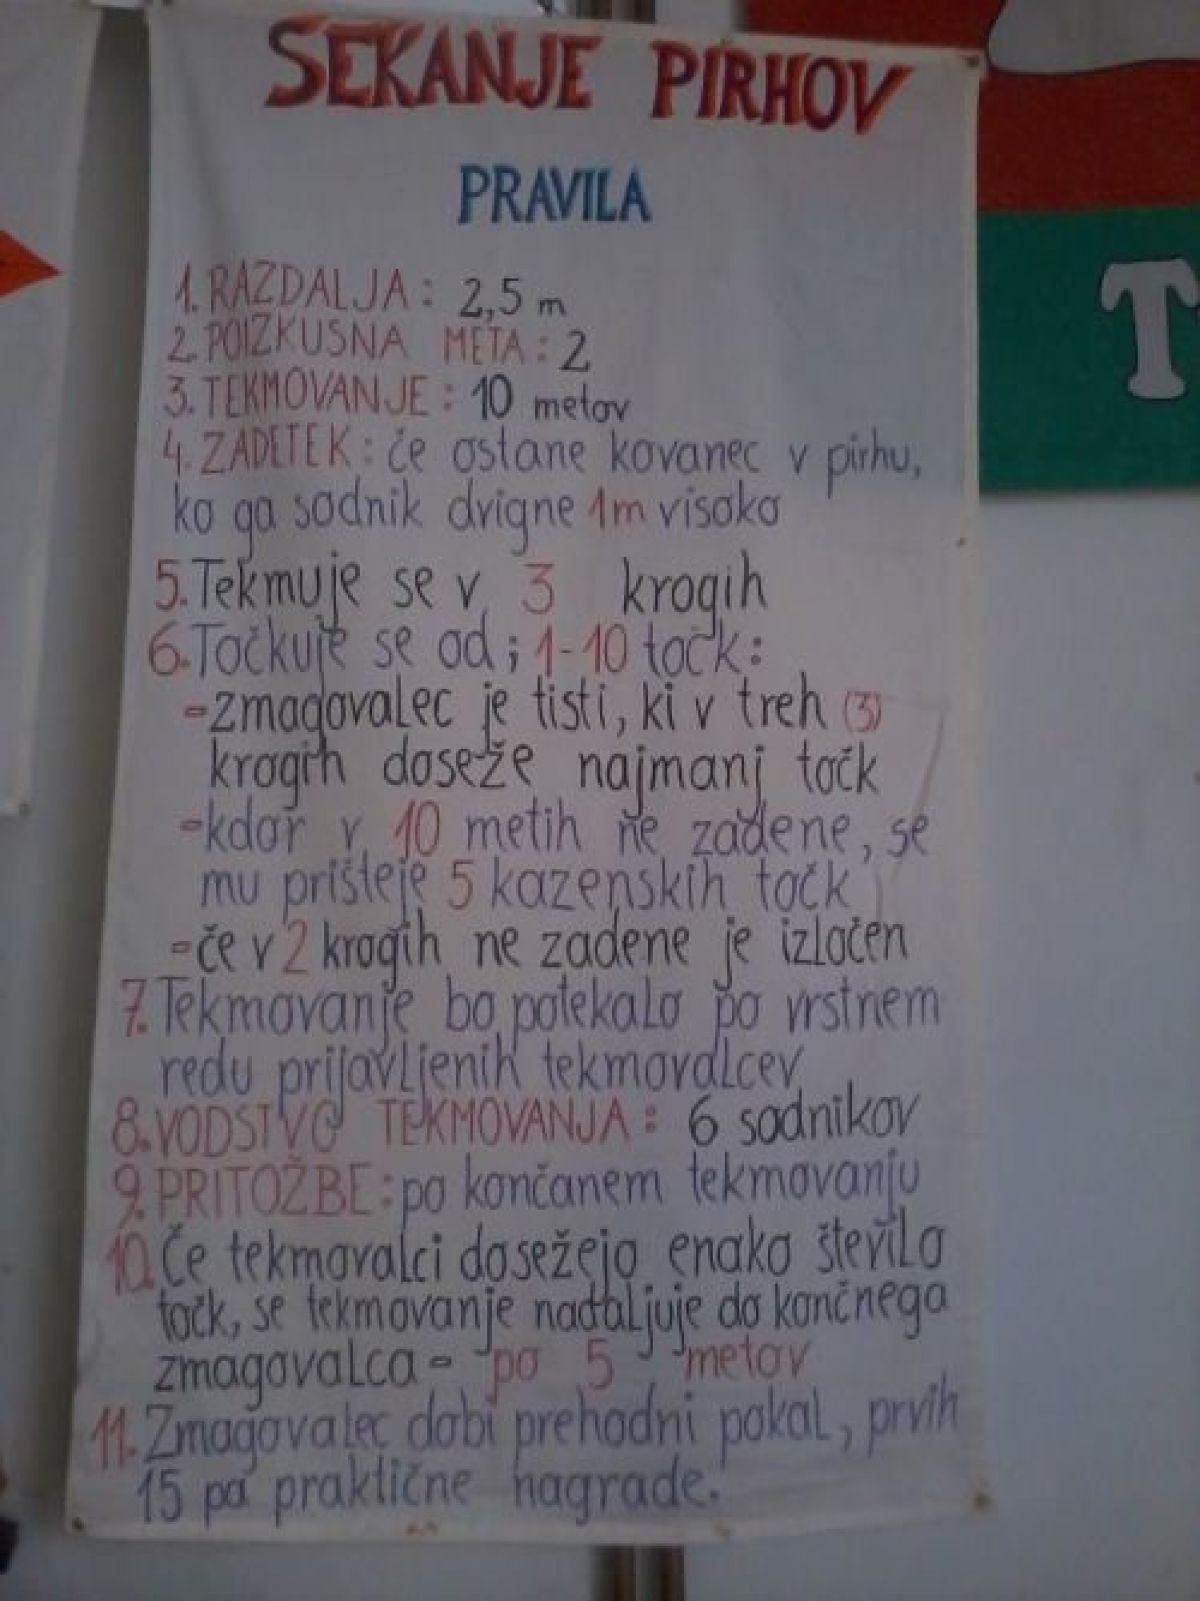 SEKANJE PIRHOV
PRAVILA
1. RAZDALJA: 2,5 m
2. POIZKUSNA META: 2
3. TEKMOVANJE: 10 metov
4. ZADETEK: če ostane kovanec v pirhu,
ko ga sodnik dvigne 1m visoko
5. Tekmuje se v 3 krogih
6. Točkuje se od; 1-10 točk:
-zmagovalec je tisti, ki v treh (3)
krogih doseže najmanj točk
-kdor v 10 metih ne zadene, se
mu prišteje 5 kazenskih točk
-če v 2 krogih ne zadene je izločen
7. Tekmovanje bo potekalo po vrstnem
redu prijavljenih tekmovalcev
8. VODSTVO TEKMOVANJA: 6 sodnikov
9. PRITOŽBE: po končanem tekmovanju
10. Če tekmovalci dosežejo enako število
točk, se tekmovanje nadaljuje do končnega
zmagovalca - po 5 metov
11. Zmagovalec dobi prehodni pokal, prvih
15 pa praktične nagrade.
T